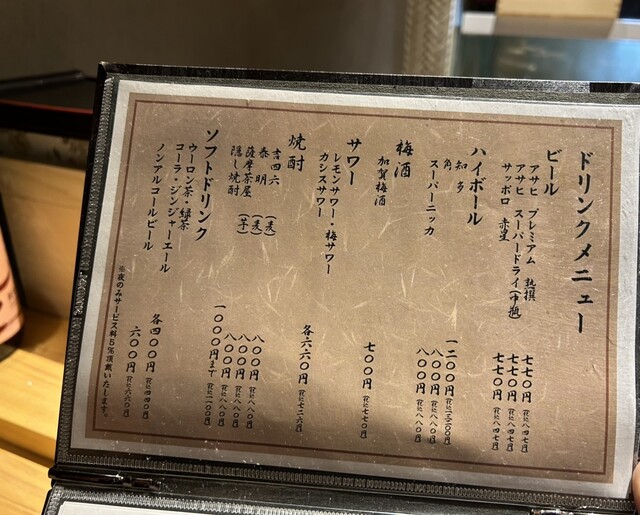 ドリンクメニュー
ビール
アサヒ プレミアム 熟撰 七七〇円 (税込八四七円)
アサヒ スーパードライ(中瓶) 七七〇円 (税込八四七円)
サッポロ 赤星 七七〇円 (税込八四七円)
ハイボール
知多 一二〇〇円 (税込一三二〇円)
角 八〇〇円 (税込八八〇円)
スーパーニッカ 八〇〇円 (税込八八〇円)
梅酒
加賀梅酒 七〇〇円 (税込七七〇円)
サワー
レモンサワー・梅サワー
カシスサワー 各六六〇円 (税込七二六円)
焼酎
吉四六 (麦) 八〇〇円 (税込八八〇円)
泰明 (麦) 八〇〇円 (税込八八〇円)
薩摩茶屋 (芋) 八〇〇円 (税込八八〇円)
隠し焼酎 一〇〇〇円 (税込一一〇〇円)
ソフトドリンク
ウーロン茶・緑茶
コーラ・ジンジャーエール 各四〇〇円 (税込四四〇円)
ノンアルコールビール 六〇〇円 (税込六六〇円)
※夜のみサービス料5%頂戴いたします。